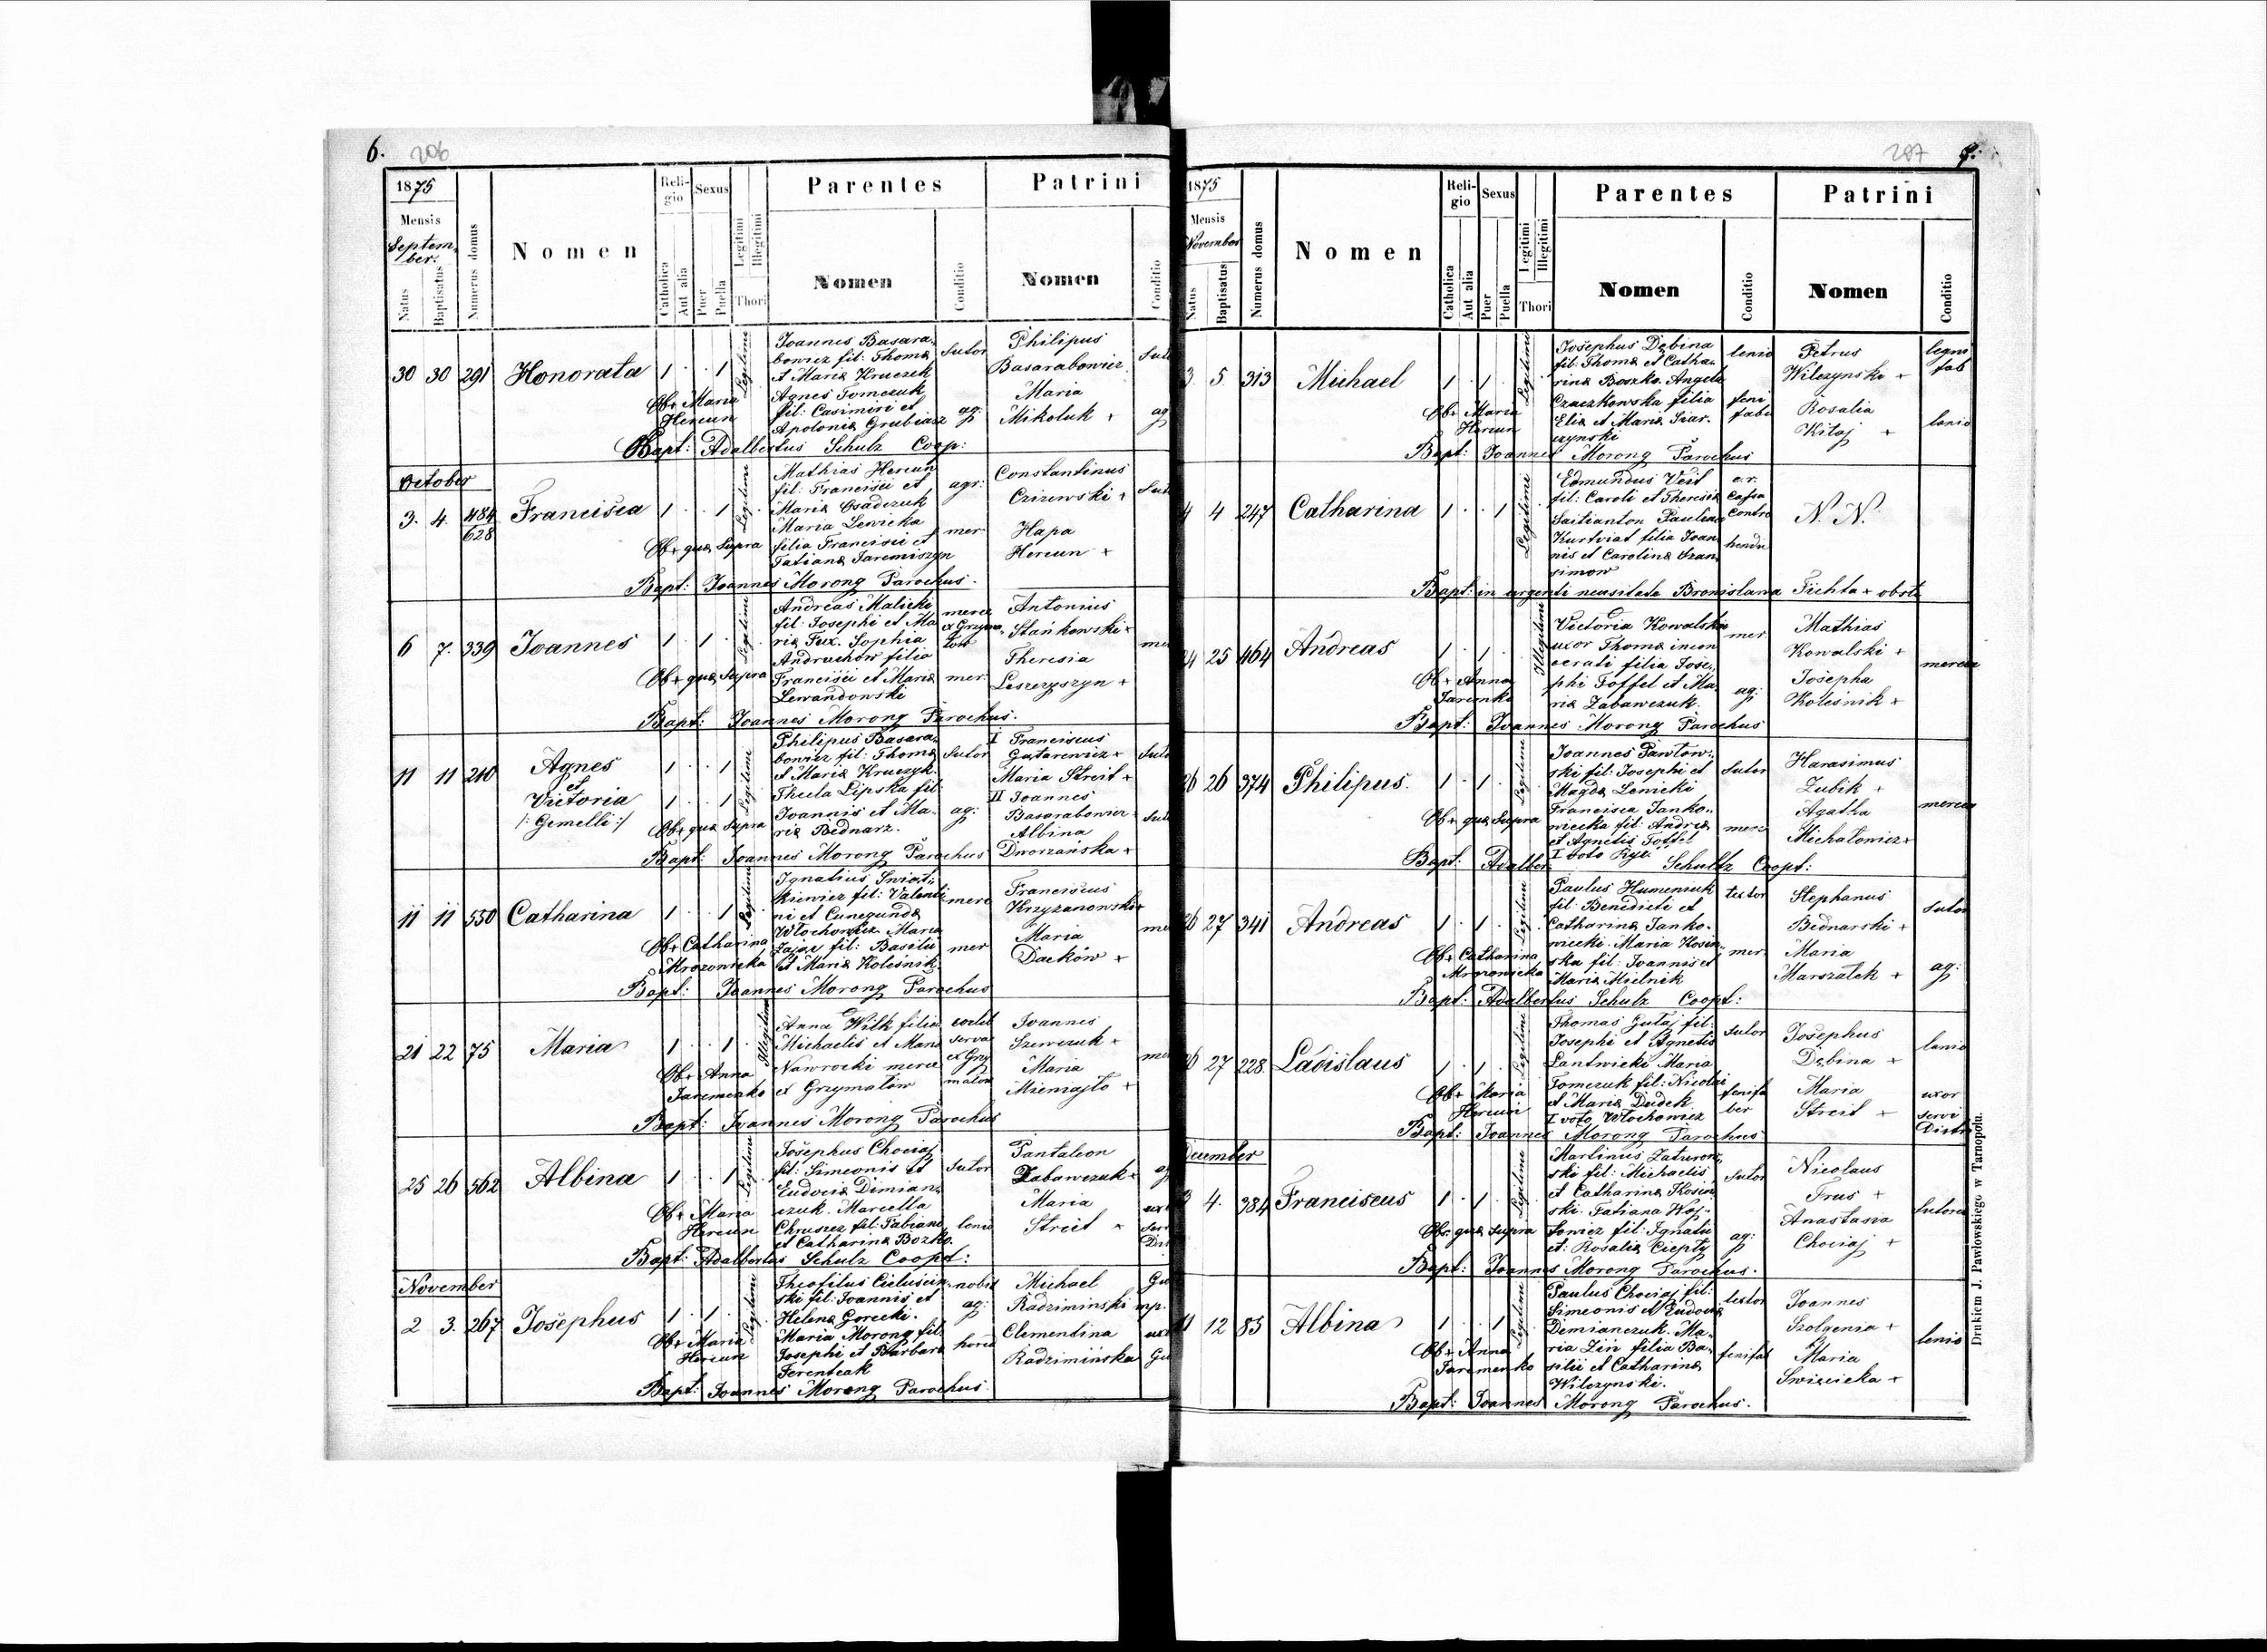 6. 206
1875
Mensis
Septem-
ber.
Natus
Baptisatus
Numerus domus
Nomen
Reli-
gio
Catholica
Aut alia
Sexus
Puer
Puella
Legitimi
Illegitimi
Thori
Parentes
Nomen
Conditio
Patrini
Nomen
Conditio
30 30 291 Honorata 1 . . 1 Legitimi
Joannes Basara-
bowicz fil: Thomæ
et Mariæ Kruczek
Agnes Tomczuk
fil: Casimiri et
Apoloniæ Grubiasz
Sutor
ag:
Philipus
Basarabowicz
Maria
Mikoluk +
Sut
ag
Obx Maria
Hercun
Bapt: Adalbertus Schulz Coop:
October
3. 4. 484
628
Francisca 1 . . 1 Legitimi
Mathias Hercun
fil: Francisci et
Mariæ Osadczuk
Maria Lenicka
filia Francisci et
Tatianæ Jaremiszyn
agr:
mer
Constantinus
Czizewski +
Hapa
Hercun +
Sut
Obx quæ supra
Bapt: Joannes Morong Parochus.
6 7. 339 Joannes 1 . 1 . Legitimi
Andreas Malicki
fil: Josephi et Ma
riæ Fux. Sophia
Andruchow filia
Francisci et Mariæ
Lewandowski
merce
ex Grzyma-
low
mer:
Antonius
Stańkowski +
Theresia
Leszczyszyn +
mer
Obx quæ supra
Bapt: Joannes Morong Parochus.
11 11 210 Agnes
et
Victoria
/: Gemelli :/
1 . . 1
1 . . 1
Legitimi
Philipus Basara-
bowicz fil: Thomæ
et Mariæ Kruczyk.
Thecla Lipska fil:
Joannis et Ma-
riæ Bednarz.
Sutor
ag:
I Franciscus
Gutarewicz +
Maria Streit +
II Joannes
Basarabowicz +
Albina
Dworzańska +
Suto
Sut
Obx quæ supra
Bapt: Joannes Morong Parochus
11 11 550 Catharina 1 . . 1 Legitimi
Ignatius Swiat-
kiewicz fil: Valenti
ni et Cunegundæ
Włochowicz. Maria
Zajac fil: Basilii
et Mariæ Koleśnik.
merc
mer
Franciscus
Krzyżanowski +
Maria
Daćków +
me
Obx Catharina
Mrozowicka
Bapt: Joannes Morong Parochus
21 22 75 Maria 1 . . 1 Illegitimi
Anna Wilk filia
Michaelis et Mariæ
Nawrocki merce
ex Grzymałów
ex Grzy
małow
Joannes
Szewczuk +
Maria
Mieniajło +
mer
Obx Anna
Jaremenko
Bapt: Joannes Morong Parochus
25 26 562 Albina 1 . . 1 Legitimi
Josephus Chociaj
fil: Simeonis et
Eudociæ Dimian-
czuk. Marcella
Chruszcz fil: Fabiani
et Catharinæ Bozko.
Sutor
lanio
Pantaleon
Zabawczuk +
Maria
Streit +
ag
Obx Maria
Hercun
Bapt: Adalbertus Schulz Coopt:
November
2 3. 267 Josephus 1 . 1 . Legitimi
Theofilus Cieluścin-
ski fil: Joannis et
Helenæ Gorecki.
Maria Morong fil:
Josephi et Barbaræ
Ferenteak
nobis
ag:
Michael
Radziminski
Clementina
Radzimińska
Gu
np.
uxo
Gu
Obx Maria
Hercun
Bapt: Joannes Morong Parochus
287 7.
1875
Mensis
November
Natus
Baptisatus
Numerus domus
Nomen
Reli-
gio
Catholica
Aut alia
Sexus
Puer
Puella
Legitimi
Illegitimi
Thori
Parentes
Nomen
Conditio
Patrini
Nomen
Conditio
3. 5 313 Michael 1 . 1 . Legitimi
Josephus Dębina
fil: Thomæ et Catha-
rinæ Boszko. Angela
Czaczkowska filia
Eliæ et Mariæ Siar-
czynski
lanio
feni
fabe
Petrus
Wilczynski +
Rosalia
Kitaj +
legni
fab
lanio
Obx Maria
Hercun
Bapt: Joannes Morong Parochus
4 4 247 Catharina 1 . . 1 Legitimi
Edmundus Veit
fil: Caroli et Theresiæ
Saitianton Paulina
Kurtviat filia Joan-
nis et Carolinæ Szan-
simow
c. r.
Cassa
Contro
N. N.
Bapt: in urgenti necessitate Bronislawa Fichta + obste
24 25 464 Andreas 1 . 1 . Illegitimi
Victoria Kowalska
uxor Thomæ incon
ocrati filia Jose-
phi Toffel et Ma-
riæ Zabawczuk.
mer
ag:
Mathias
Kowalski +
Josepha
Kolesnik +
mercen
Obx Anna
Jaremko
Bapt: Joannes Morong Parochus
26 26 374 Philipus. 1 . 1 . Legitimi
Joannes Pawłow-
ski fil: Josephi et
Magdæ Lenicki
Francisca Janko-
wiecka fil: Andreæ
et Agnetis Toffel
I voto Ryz.
Sutor
merc
Harasimus
Zubik +
Agatha
Michałowicz +
mercen
Obx quæ supra
Bapt: Adalber Schultz Coopt:
26 27 341 Andreas 1 . 1 . Legitimi
Paulus Humeniuk
fil: Benedicti et
Catharinæ Janko-
wiecki. Maria Kosin-
ska fil: Joannis et
Mariæ Mielnik
textor
mer:
Stephanus
Bednarski +
Maria
Marszałek +
Sutor
ag:
Obx Catharina
Mrozowicka
Bapt: Adalbertus Schulz Coopt:
26 27 228. Ladislaus 1 . 1 . Legitimi
Thomas Gutaj fil:
Josephi et Agnetis
Lantwicki Maria
Tomczuk fil: Nicolai
et Mariæ Dudek
I voto Włochowicz
Sutor
fenifa
ber
Josephus
Dębina +
Maria
Streit +
lanio
uxor
servi
Distri
Obx Maria
Hercun
Bapt: Joannes Morong Parochus
December
3 4. 384 Franciscus 1 . 1 . Legitimi
Martinus Zaturow-
ski fil: Michaelis
et Catharinæ Kosin
ski. Tatiana Woj-
towicz fil: Ignatii
et: Rosaliæ Ciepły
Sutor
ag:
Nicolaus
Frus +
Anastasia
Chociaj +
Sutores
Obx quæ supra
Bapt: Joannes Morong Parochus.
11 12 85 Albina 1 . . 1 Legitimi
Paulus Chociaj fil:
Simeonis et Eudociæ
Demianczuk. Ma-
ria Zin filia Ba-
silii et Catharinæ
Wilczynski.
textor
fenifab
Joannes
Szolgenia +
Maria
Swiżicka +
lanio
Obx Anna
Jaremenko
Bapt: Joannes Morong Parochus.
Drukiem J. Pawlowskiego w Tarnopolu.